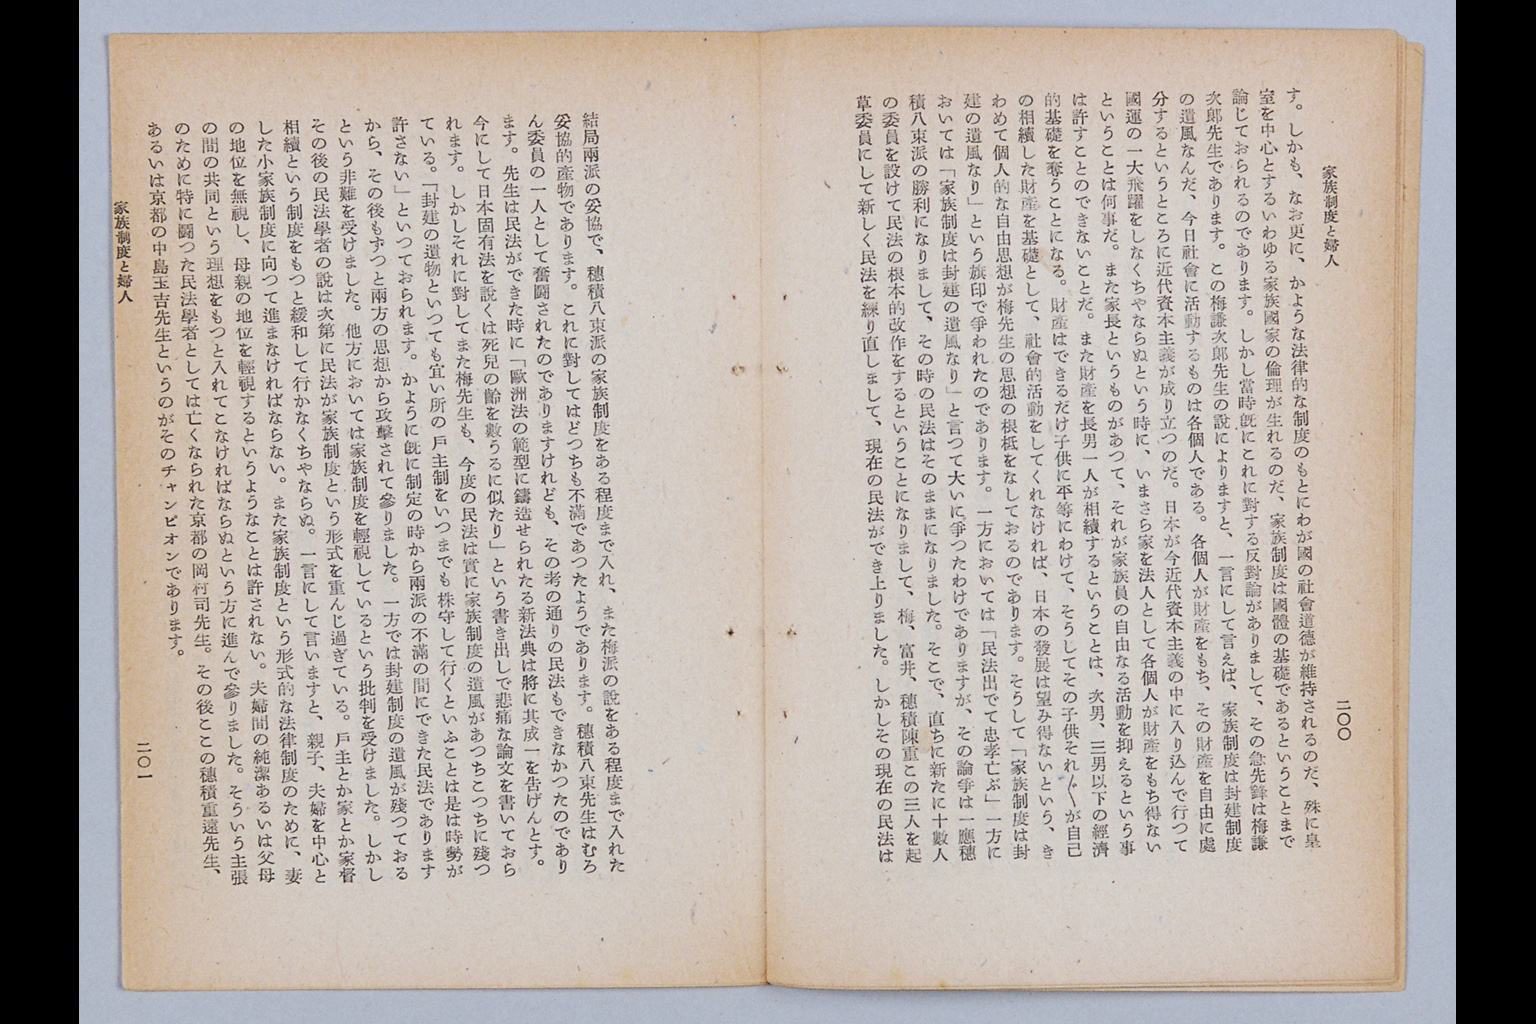 家族制度と婦人
二〇〇
す。しかも、なお更に、かような法律的な制度のもとにわが國の社會道徳が維持されるのだ、殊に皇
室を中心とするいわゆる家族國家の倫理が生れるのだ、家族制度は國體の基礎であるということまで
論じておられるのであります。しかし當時旣にこれに對する反對論がありまして、その急先鋒は梅謙
次郎先生であります。この梅謙次郎先生の說によりますと、一言にして言えば、家族制度は封建制度
の遺風なんだ、今日社會に活動するものは各個人である。各個人が財產をもち、その財產を自由に處
分するというところに近代資本主義が成り立つのだ。日本が今近代資本主義の中に入り込んで行つて
國運の一大飛躍をしなくちやならぬという時に、いまさら家を法人として各個人が財產をもち得ない
ということは何事だ。また家長というものがあつて、それが家族員の自由なる活動を抑えるという事
は許すことのできないことだ。また財產を長男一人が相續するということは、次男、三男以下の經濟
的基礎を奪うことになる。財產はできるだけ子供に平等にわけて、そうしてその子供それ〲が自己
の相續した財產を基礎として、社會的活動をしてくれなければ、日本の發展は望み得ないという、き
わめて個人的な自由思想が梅先生の思想の根柢をなしておるのであります。そうして「家族制度は封
建の遺風なり」という旗印で爭われたのであります。一方においては「民法出でて忠孝亡ぶ」一方に
おいては「家族制度は封建の遺風なり」と言つて大いに爭つたわけでありますが、その論爭は一應穗
積八束派の勝利になりまして、その時の民法はそのままになりました。そこで、直ちに新たに十數人
の委員を設けて民法の根本的改作をするということになりまして、梅、富井、穗積陳重この三人を起
草委員にして新しく民法を練り直しまして、現在の民法ができ上りました。しかしその現在の民法は
結局兩派の妥協で、穗積八束派の家族制度をある程度まで入れ、また梅派の說をある程度まで入れた
妥協的產物であります。これに對してはどつちも不滿であつたようであります。穗積八束先生はむろ
ん委員の一人として奮鬪されたのでありますけれども、その考の通りの民法もできなかつたのであり
ます。先生は民法ができた時に「歐洲法の範型に鑄造せられたる新法典は將に其成一を吿げんとす。
今にして日本固有法を說くは死兒の齡を數うるに似たり」という書き出しで悲痛な論文を書いておら
れます。しかしそれに對してまた梅先生も、今度の民法は實に家族制度の遺風があつちこつちに殘つ
ている。「封建の遺物といつても宜い所の戶主制をいつまでも株守して行くといふことは是は時勢が
許さない」といつておられます。かように旣に制定の時から兩派の不滿の間にできた民法であります
から、その後もずつと兩方の思想から攻擊されて參りました。一方では封建制度の遺風が殘つておる
という非難を受けました。他方においては家族制度を輕視しているという批判を受けました。しかし
その後の民法學者の說は次第に民法が家族制度という形式を重んじ過ぎている。戶主とか家とか家督
相續という制度をもつと緩和して行かなくちやならぬ。一言にして言いますと、親子、夫婦を中心と
した小家族制度に向つて進まなければならない。また家族制度という形式的な法律制度のために、妻
の地位を無視し、母親の地位を輕視するというようなことは許されない。夫婦間の純潔あるいは父母
の間の共同という理想をもつと入れてこなければならぬという方に進んで參りました。そういう主張
のために特に鬪つた民法學者としては亡くなられた京都の岡村司先生。その後ここの穗積重遠先生、
あるいは京都の中島玉吉先生というのがそのチャンピオンであります。
家族制度と婦人
二〇一